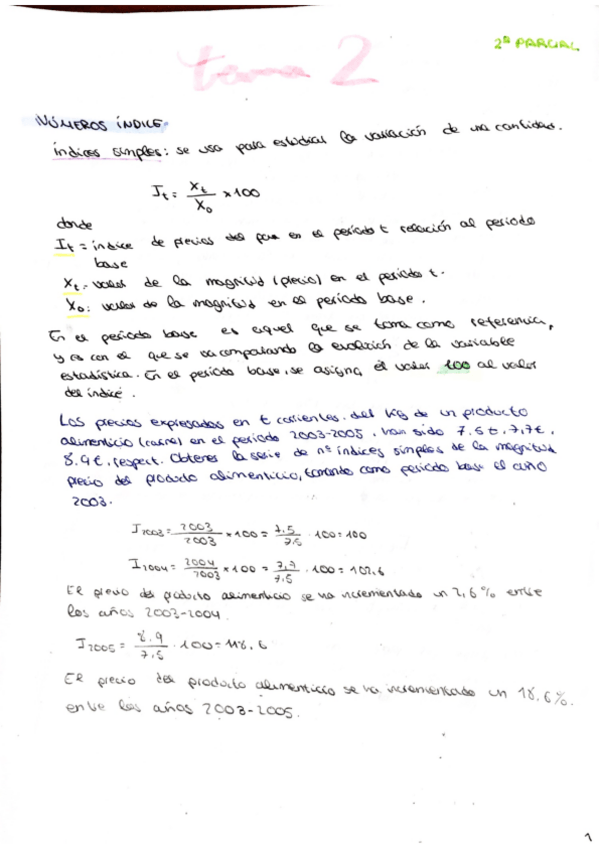 2º PARCIAL
tema 2
NÚMEROS ÍNDICE
índices simples: se usa para estudiar la variación de una cantidad.
It = Xt / X0 × 100
donde
It = índice de precios del en el período t relación al período
base
Xt = valor de la magnitud (precio) en el período t.
X0: valor de la magnitud en el período base.
En el período base es aquel que se toma como referencia,
y es con el que se va computando la evolución de la variable
estadística. En el período base, se asigna el valor 100 al valor
del índice.
Los precios expresados en € corrientes del kg de un producto
alimenticio (carne) en el período 2003-2005, han sido 7.5 €, 7,7€,
8.9€, respect. Obtener la serie de nº índices simples de la magnitud
precio del producto alimenticio, tomando como período base el año
2003.
I2003 = 2003 / 2003 × 100 = 7,5 / 7.5 · 100 = 100
I2004 = 2004 / 2003 × 100 = 7,7 / 7,5 · 100 = 102,6
El precio del producto alimenticio se ha incrementado un 2,6% entre
los años 2003-2004
I2005 = 8.9 / 7,5 · 100 = 118,6
El precio del producto alimenticio se ha incrementado un 18.6%.
entre los años 2003-2005.
1